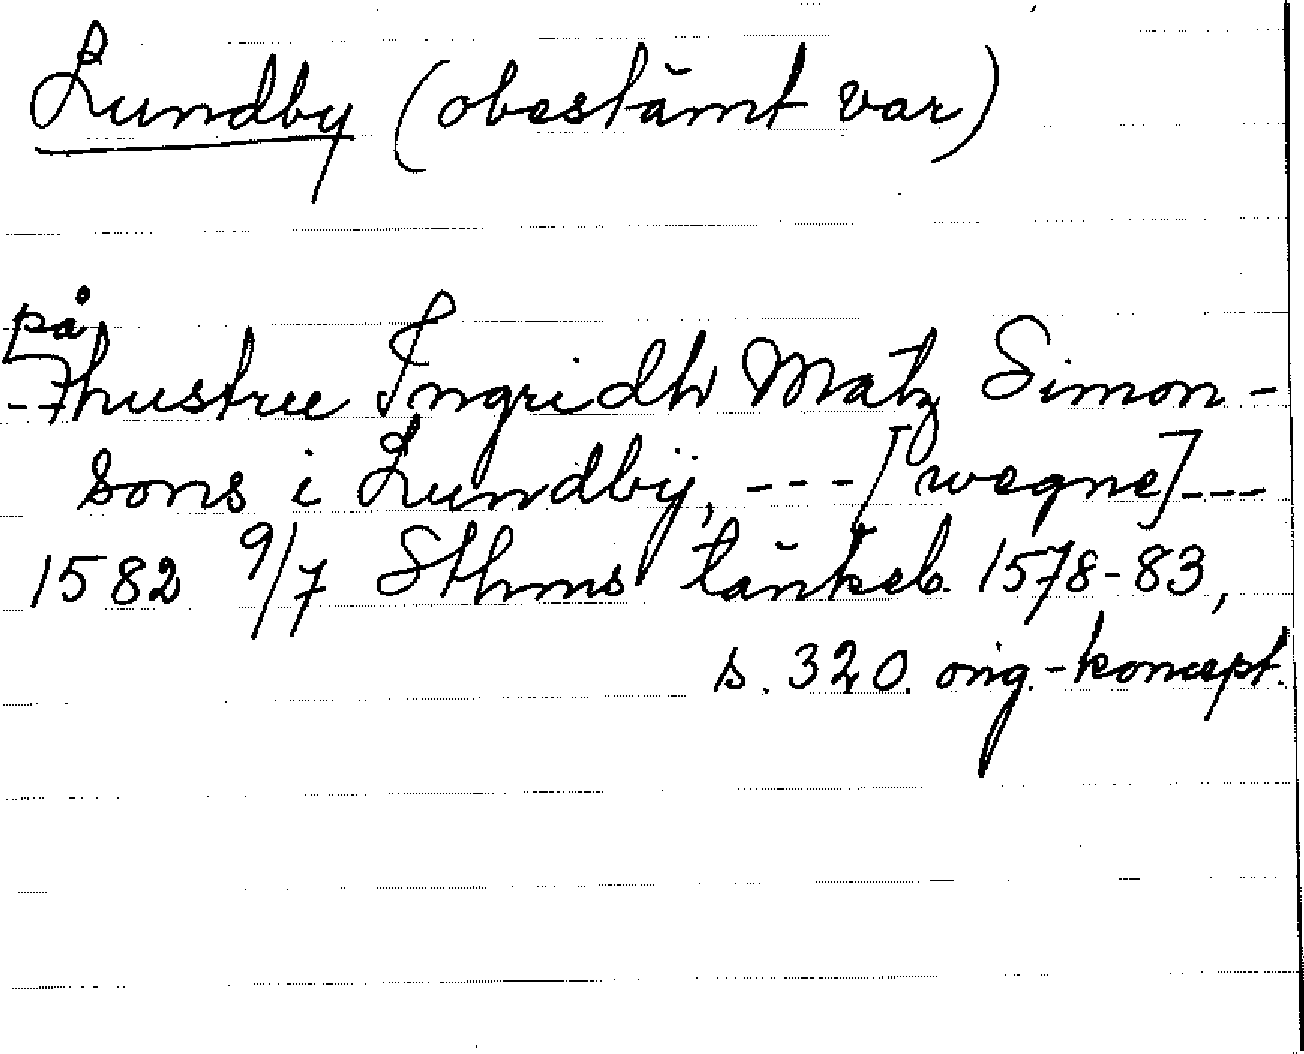 Lundby (obestämt var)
på
hustrue Ingridh Matz Simon-
sons i Lundbÿ, --- [wegne] ---
1582 9/7 Sthms tänkeb. 1578-83,
s. 320. orig.-koncept.